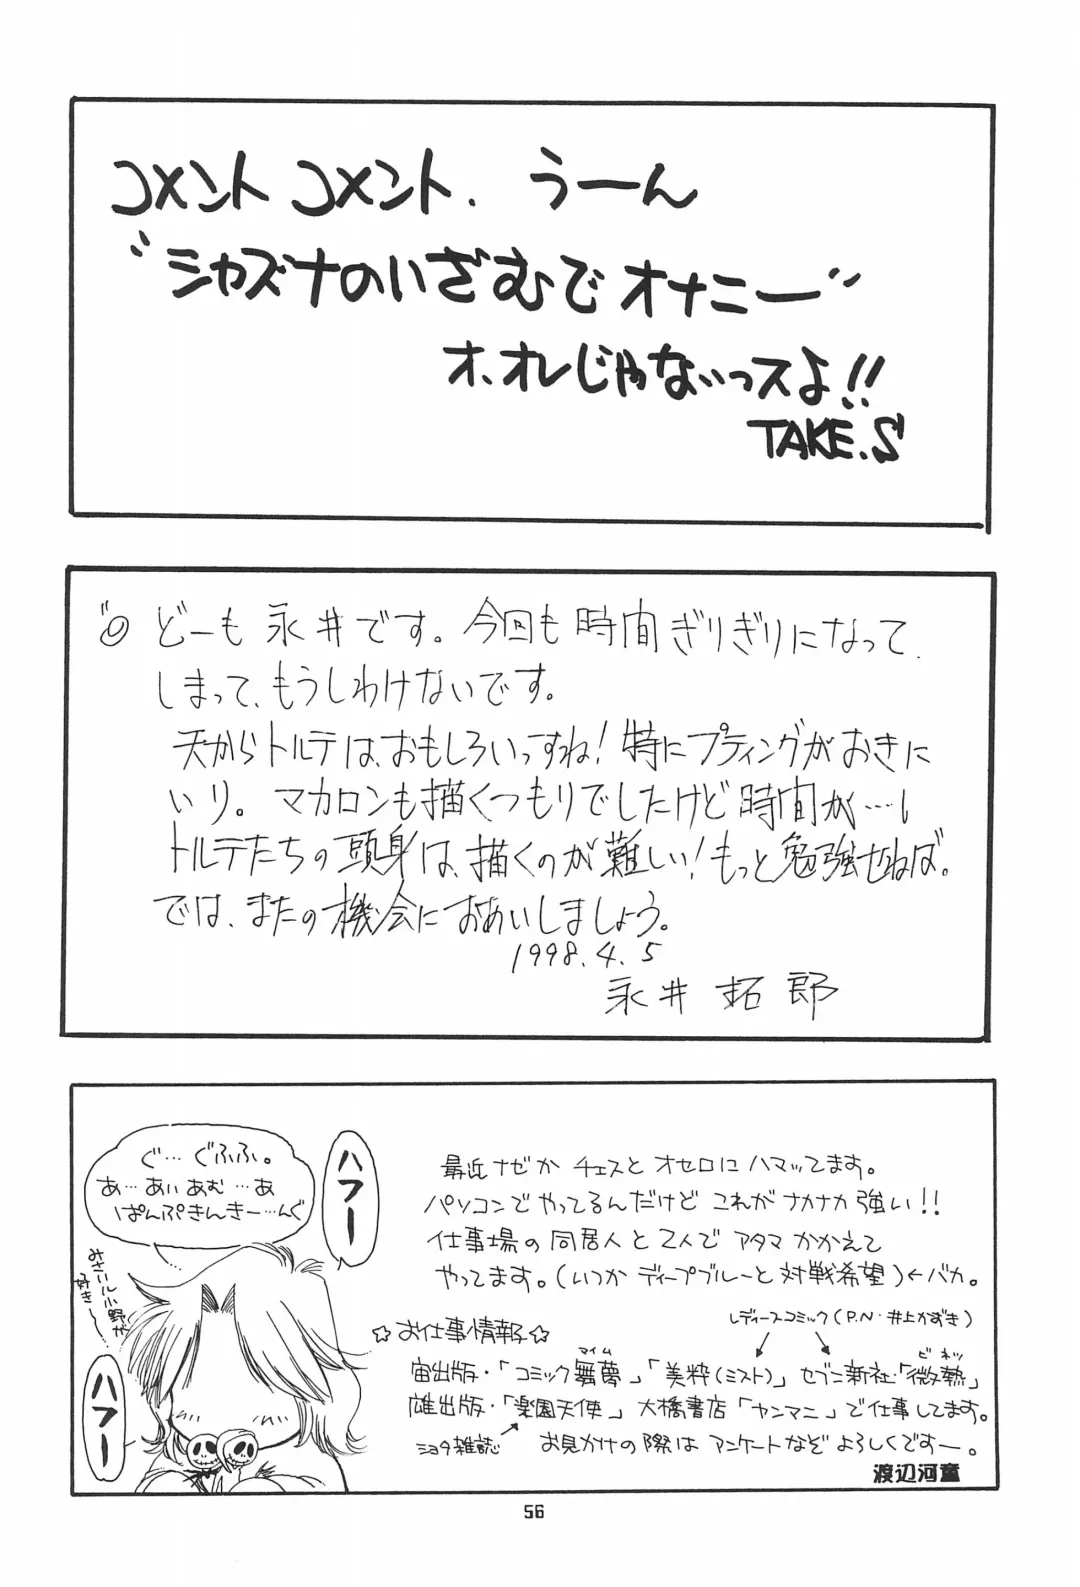 コメント コメント、うーん
"シャズナのいざむでオナニー"
オ、オレじゃないっスよ!!
TAKE.S
どーも永井です。今回も時間ぎりぎりになって
しまって、もうしわけないです。
天からトルテは、おもしろいっすね!特にプティングがおきに
いり。マカロンも描くつもりでしたけど時間が…。
トルテたちの頭身は、描くのが難しい!もっと勉強せねば。
では、またの機会におあいしましょう。
1998.4.5
永井拓郎
ぐ…ぐふふ。
あ…あい あむ…あ
ぱんぷきんきー…んぐ
ハフー
みさいル小野が
好き〜
ハフー
最近ナゼか チェスと オセロに ハマッてます。
パソコンでやってるんだけど これが ナカナカ 強い!!
仕事場の同居人と2人で アタマ かかえて
やってます。(いつか ディープブルーと対戦希望)←バカ。
レディースコミック(P.N・井上かずき)
☆お仕事情報☆
宙出版・「コミック舞夢」「美粋(ミスト)」 セブン新社「微熱」
マイム
ビネツ
雄出版・「楽園天使」 大橋書店「ヤンマニ」で仕事してます。
ショタ雑誌
お見かけの際は アンケートなぞ よろしくですー。
渡辺河童
56